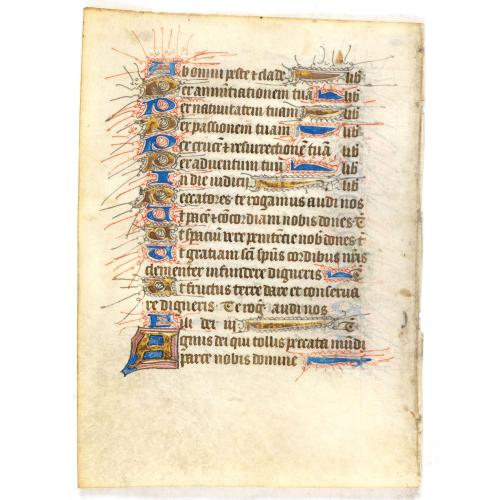 Ab omni peste et clade lib
Per annuntiationem tuā lib
Per nativitatem tuam lib
Per passionem tuam lib
Per crucē et resurrectionē tuā lib
Per adventum tuū lib
In die iudicij lib
Peccatores te rogamus audi nos
Ut pacē et concordiam nobis dones T
Ut spaciū vere penitēcie nob dones t
Ut gratiam scī spūs cordibus nr̄is
clementer infundere digneris T
Ut fructus terre dare et conserva
re digneris Te rog audi nos
Fili dei iij T
Agnus dei qui tollis peccata mūdi
parce nobis domine